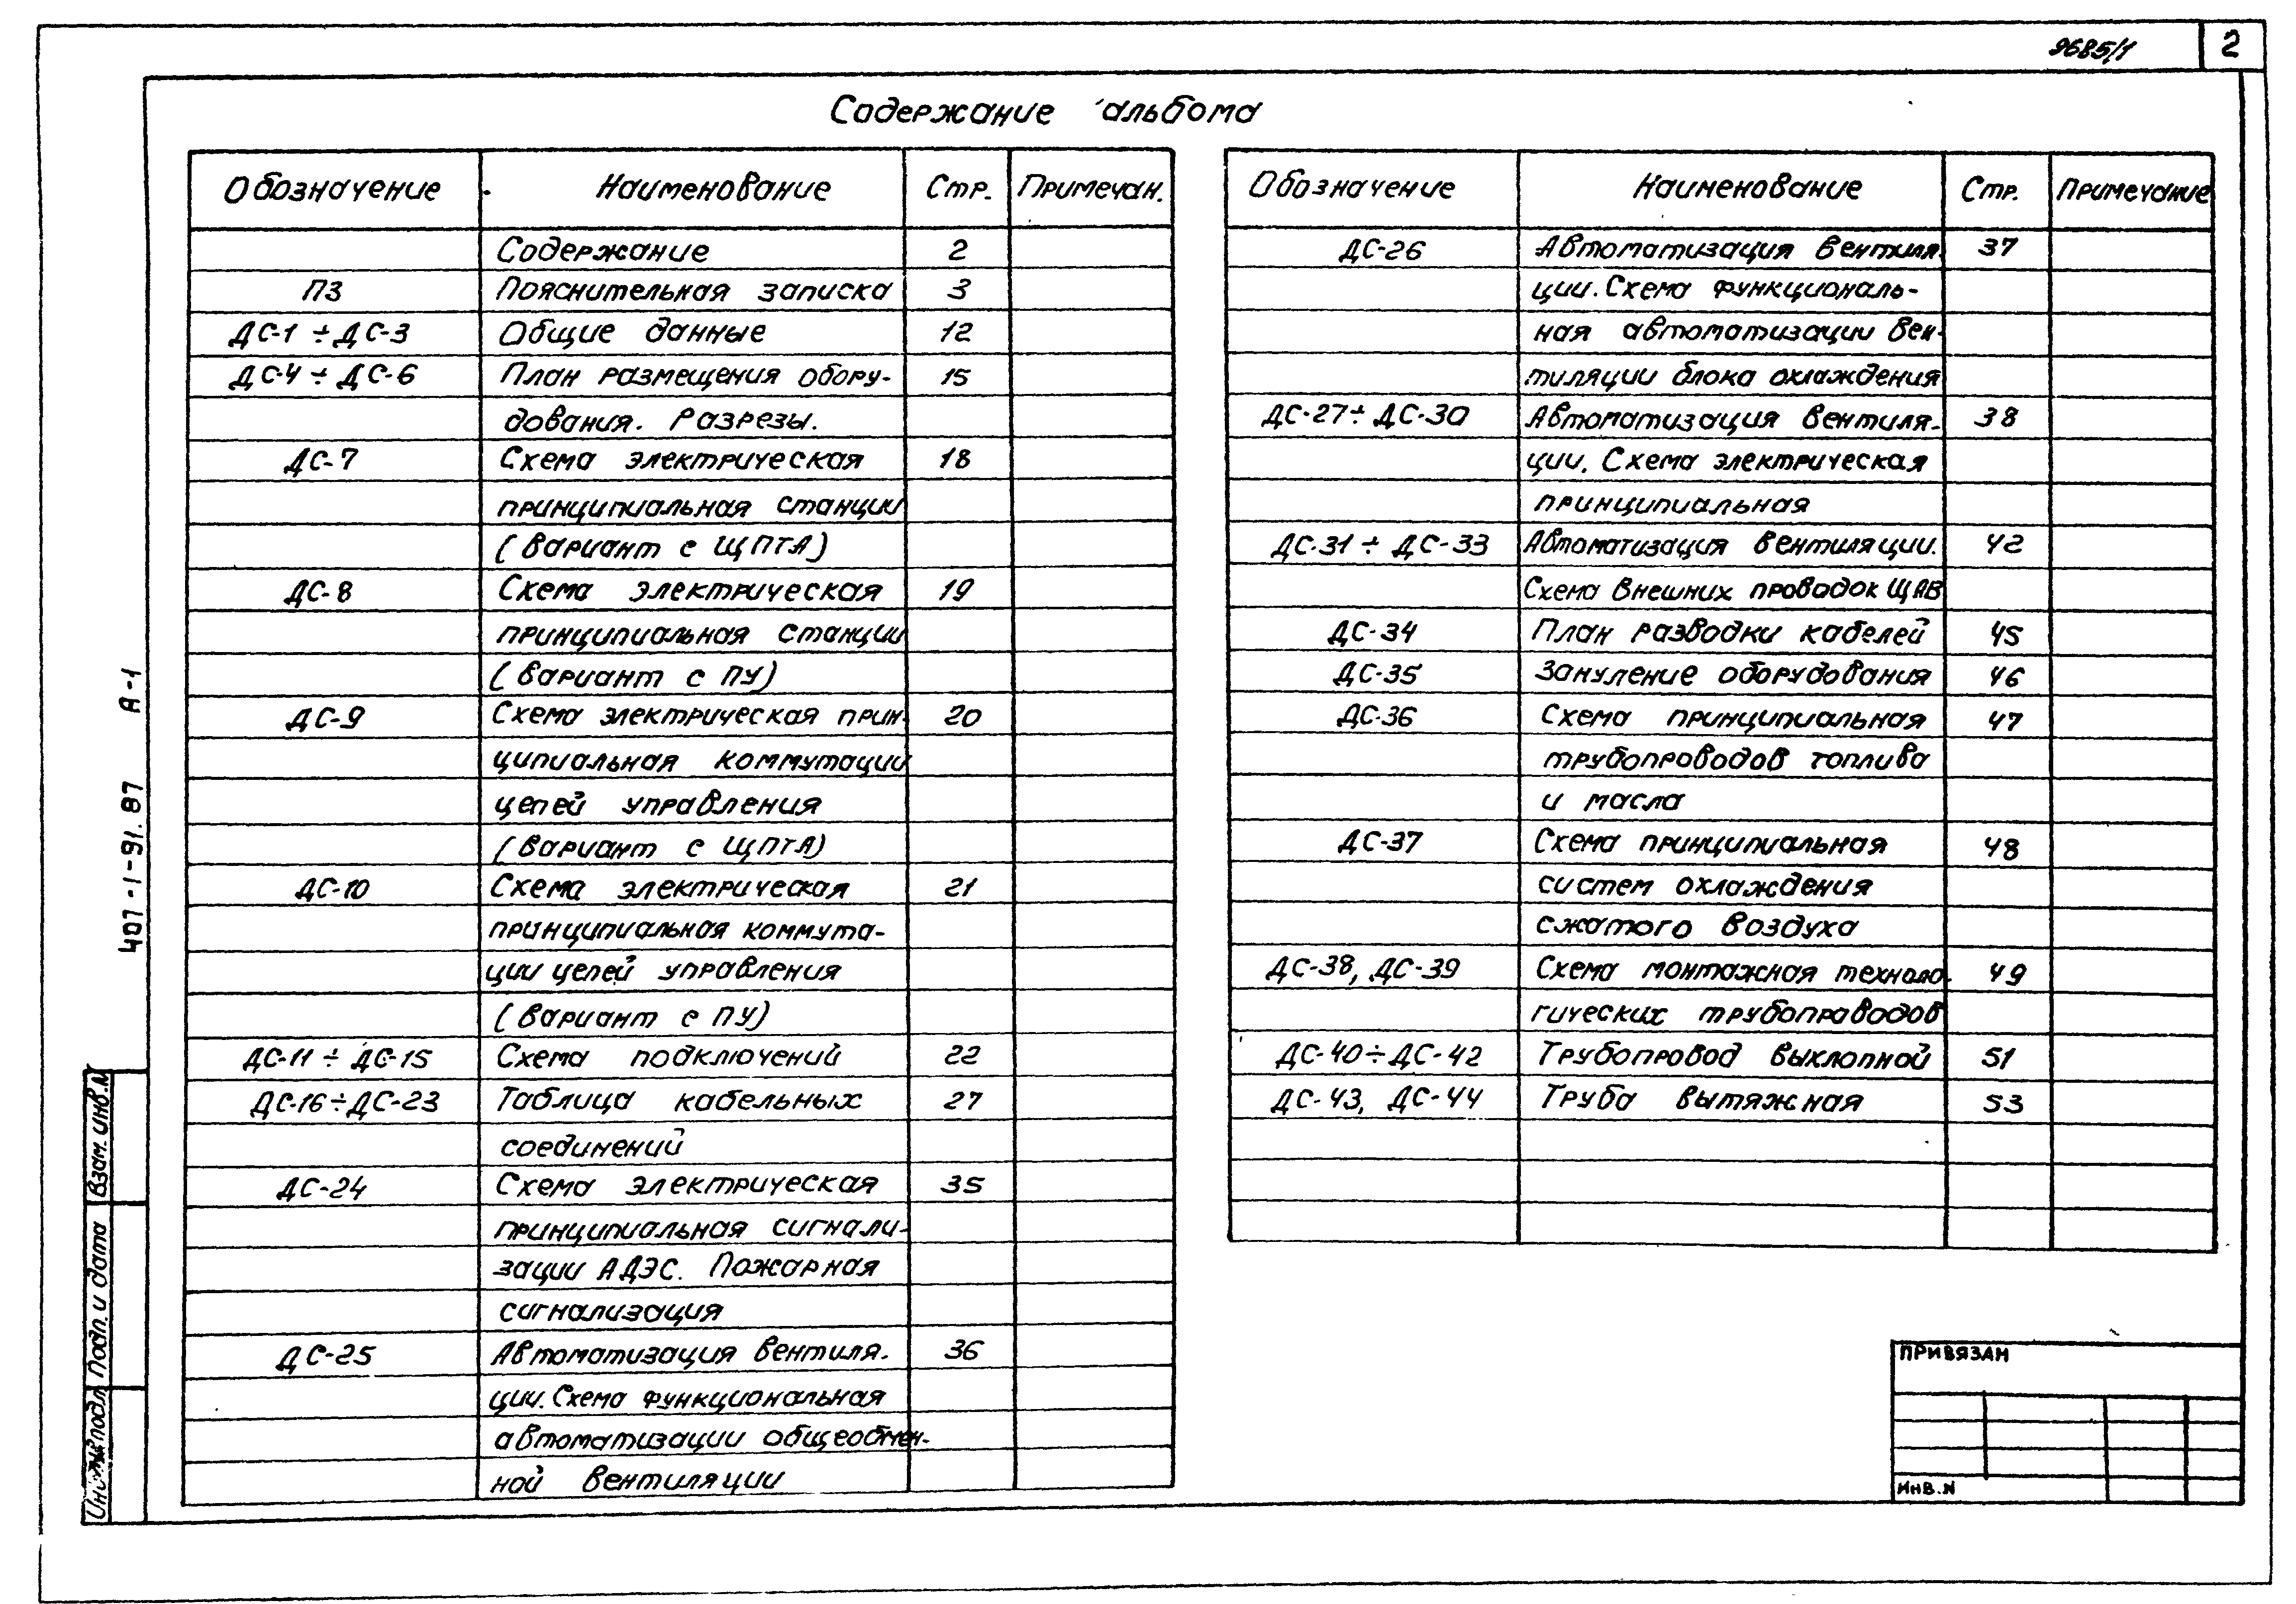 9685/1 2
Содержание альбома
Обозначение Наименование Стр. Примечан.
Содержание 2
ПЗ Пояснительная записка 3
ДС-1 ÷ ДС-3 Общие данные 12
ДС-4 ÷ ДС-6 План размещения обору- 15
дования. Разрезы.
ДС-7 Схема электрическая 18
принципиальная станции
(вариант с ЩПТА)
ДС-8 Схема электрическая 19
принципиальная станции
(вариант с ПУ)
ДС-9 Схема электрическая прин- 20
ципиальная коммутации
цепей управления
(вариант с ЩПТА)
ДС-10 Схема электрическая 21
принципиальная коммута-
ции цепей управления
(вариант с ПУ)
ДС-11 ÷ ДС-15 Схема подключений 22
ДС-16÷ДС-23 Таблица кабельных 27
соединений
ДС-24 Схема электрическая 35
принципиальная сигнали-
зации АДЭС. Пожарная
сигнализация
ДС-25 Автоматизация вентиля- 36
ции. Схема функциональная
автоматизации общеобмен-
ной вентиляции
Обозначение Наименование Стр. Примечание
ДС-26 Автоматизация вентиля- 37
ции. Схема функциональ-
ная автоматизации вен-
тиляции блока охлаждения
ДС-27÷ ДС-30 Автоматизация вентиля- 38
ции. Схема электрическая
принципиальная
ДС-31 ÷ ДС-33 Автоматизация вентиляции. 42
Схема внешних проводок ЩАВ
ДС-34 План разводки кабелей 45
ДС-35 Зануление оборудования 46
ДС-36 Схема принципиальная 47
трубопроводов топлива
и масла
ДС-37 Схема принципиальная 48
систем охлаждения
сжатого воздуха
ДС-38, ДС-39 Схема монтажная техноло- 49
гических трубопроводов
ДС-40÷ДС-42 Трубопровод выхлопной 51
ДС-43, ДС-44 Труба вытяжная 53
407-1-91.87 А-1
Взам. инв.N
Подп. и дата
Инв.№ подл
ПРИВЯЗАН
ИНВ.N